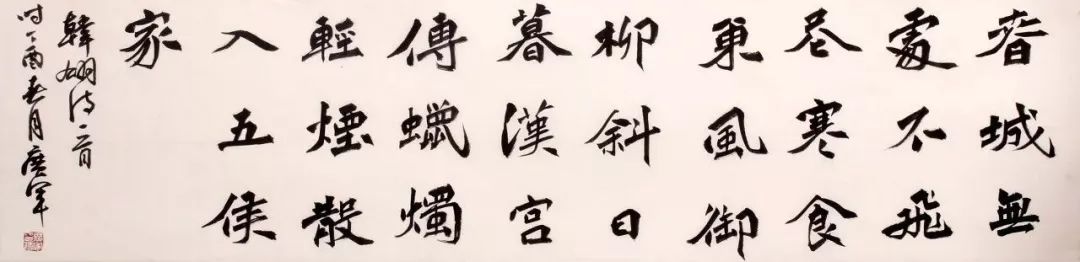 春城無
處不飛
花寒食
東風御
柳斜日
暮漢宮
傳蠟燭
輕煙散
入五侯
家
韓翃诗一首
时丁酉春月